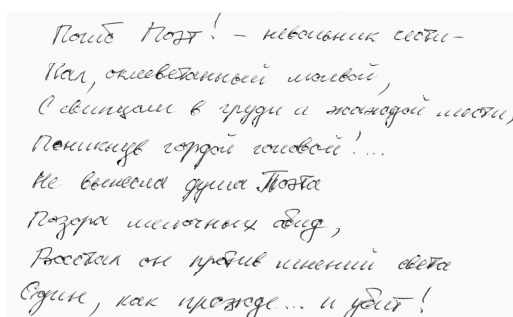 Погиб Поэт! - невольник чести -
Пал, оклеветанный молвой,
С свинцом в груди и жаждой мести,
Поникнув гордой головой!...
Не вынесла душа Поэта
Позора мелочных обид,
Восстал он против мнений света
Один, как прежде... и убит!